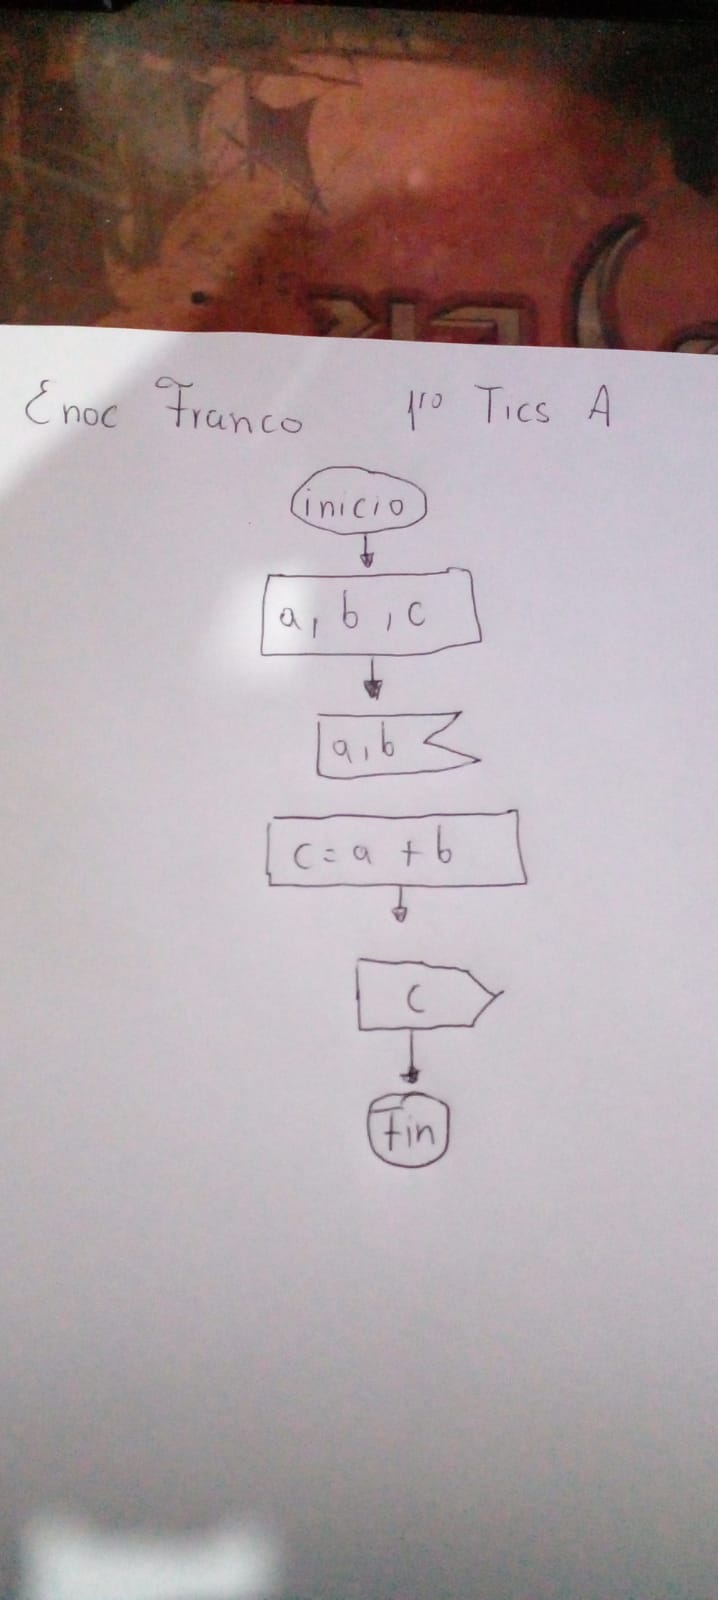 Enoc Franco 1ro Tics A
inicio
a, b, c
a, b
c = a + b
c
Fin